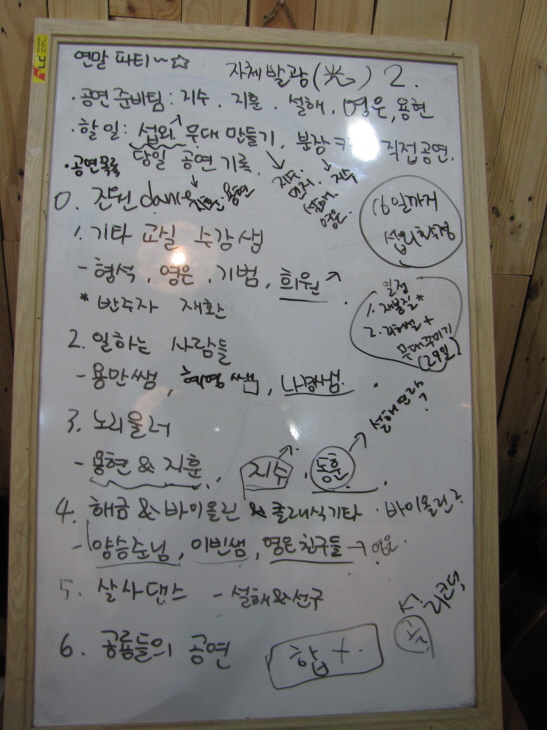 연말 파티~☆
자체발광(光) 2.
·공연 준비팀: 지수, 지훈, 설해, 영은, 용현
·할일: 섭외, 무대 만들기, 직접공연.
당일 공연 기록
·공연목록
지수
영은
용현
0. 전원 dance
1. 기타 교실 수강생
- 형석, 영은, 기범, 희원
* 반주자 재환
16일까지
섭외확정
일정
2.
무대꾸미기
(29일)
2. 일하는 사람들
- 용만쌤, 혜영쌤,
3. 노리울러
- 용현 & 지훈, 지수, 동훈
4. 해금 & 바이올린 & 클래식기타 · 바이올린?
- 양승준님, 이빈샘, 영은친구들 → 영은
5. 살사댄스 - 설해&선구
6. 공룡들의 공연
합 +.